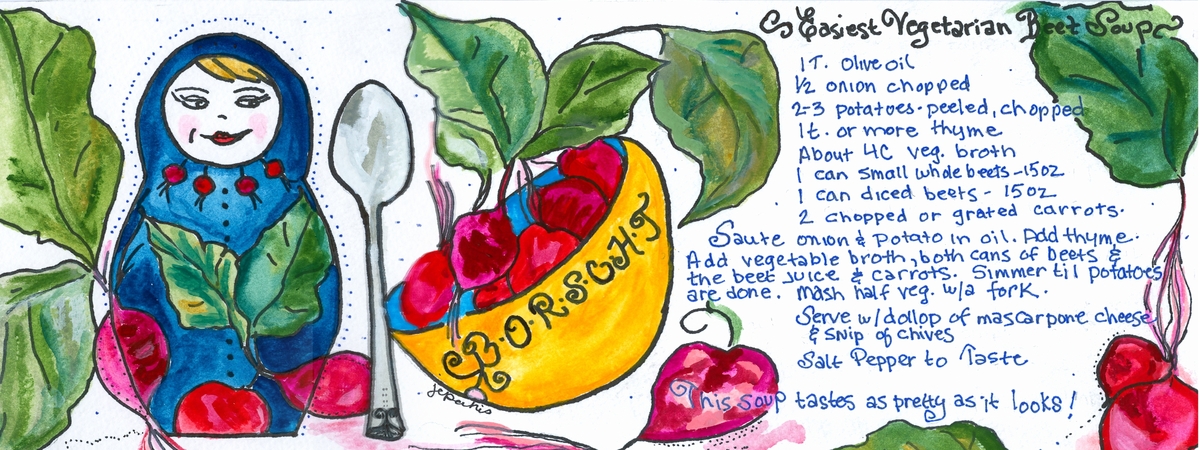 Easiest Vegetarian Beet Soup
1T. Olive oil
1/2 onion chopped
2-3 potatoes-peeled, chopped
1t. or more thyme
About 4C veg. broth
1 can small whole beets-15oz
1 can diced beets - 15oz
2 chopped or grated carrots.
Saute onion & potato in oil. Add thyme.
Add vegetable broth, both cans of beets &
the beet juice & carrots. Simmer til potatoes
are done. mash half veg. w/a fork.
Serve w/dollop of mascarpone cheese
& snip of chives
Salt Pepper to Taste
This soup tastes as pretty as it looks!
B·O·R·S·C·H·T